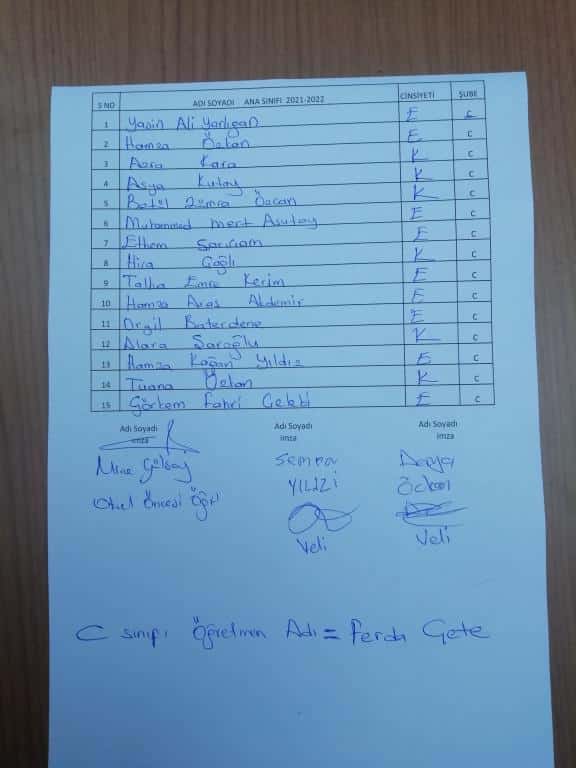 S NO ADI SOYADI ANA SINIFI 2021-2022 CİNSİYETİ ŞUBE
1 Yasin Ali Yarlıgan E C
2 Hamza Özlan E C
3 Azra Kara K C
4 Asya Kutay K C
5 Betül Zümra Özcan K C
6 Muhammed Mert Asutay E C
7 Ethem Sarıcam E C
8 Hira Goğlı K C
9 Talha Emre Kerim E C
10 Hamza Aras Akdemir E C
11 Orgil Baterdene E C
12 Alara Saroğlu K C
13 Hamza Kağan Yıldız E C
14 Tuana Özlan K C
15 Görkem Fahri Çelebi E C
Adı Soyadı Adı Soyadı Adı Soyadı
imza imza imza
Mine Gülsoy Semra Derya
Okul Öncesi Öğrt YILDZİ
Veli Veli
C sınıfı Öğretmen Adı = Ferda Gete